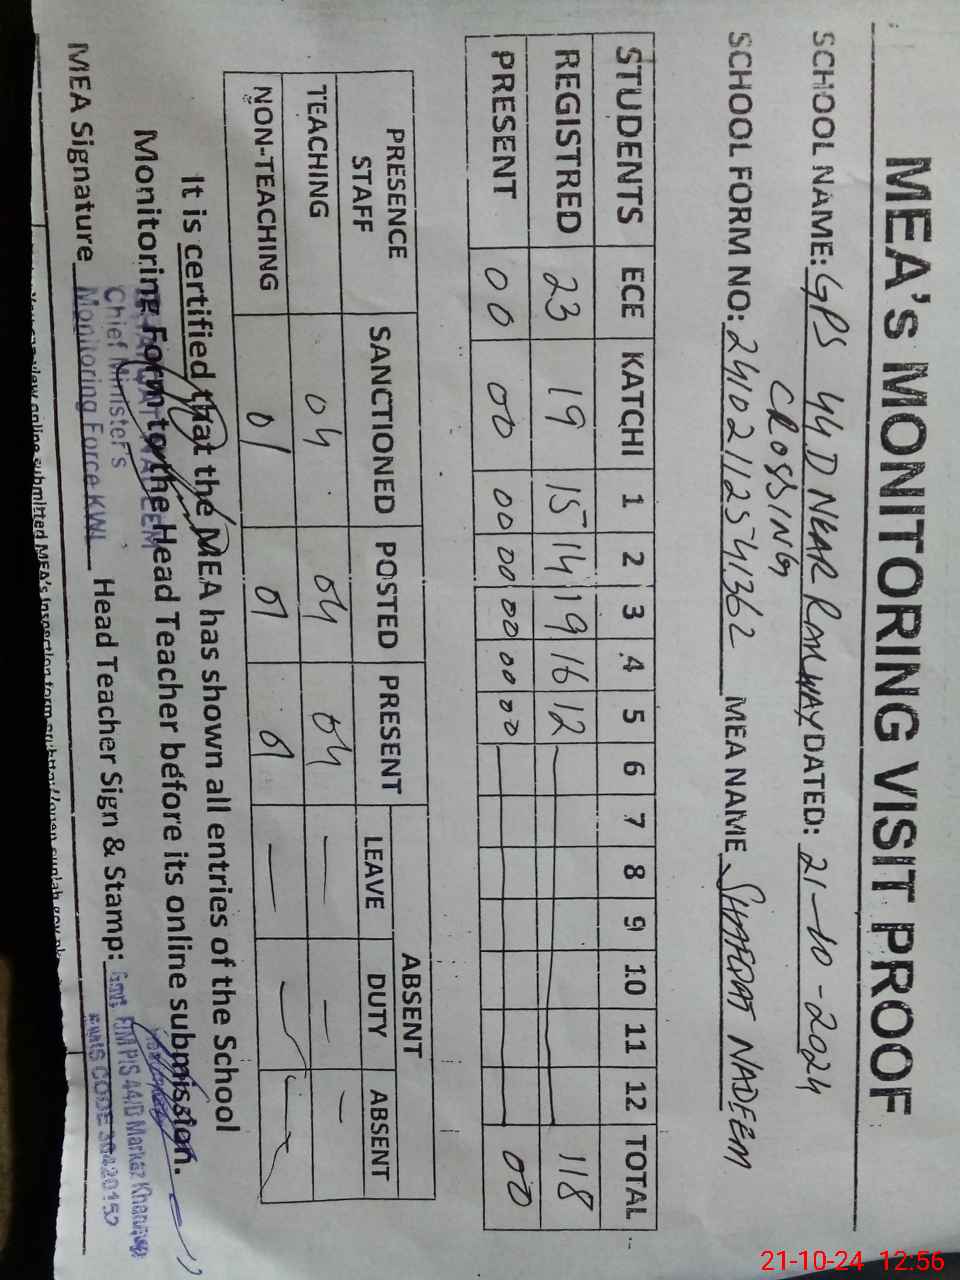 MEA's MONITORING VISIT PROOF
SCHOOL NAME: GPS 44D NEAR RAILWAY DATED: 21-10-2024
CROSSING
SCHOOL FORM NO: 2410211254362 MEA NAME SHAFQAT NADEEM
STUDENTS ECE KATCHI 1 2 3 4 5 6 7 8 9 10 11 12 TOTAL
REGISTRED 23 19 15 14 19 16 12 118
PRESENT 00 00 00 00 00 00 00 00
PRESENCE STAFF SANCTIONED POSTED PRESENT ABSENT
LEAVE DUTY ABSENT
TEACHING 04 04 04 — — —
NON-TEACHING 01 01 01 —
It is certified that the MEA has shown all entries of the School
Monitoring Form to the Head Teacher before its online submission.
MEA Signature Head Teacher Sign & Stamp:
NADEEM
Chief Minister's
Monitoring Force KWL
Govt 44/D Markaz
CODE
view online submitted MEA's Inspection form
21-10-24 12:56